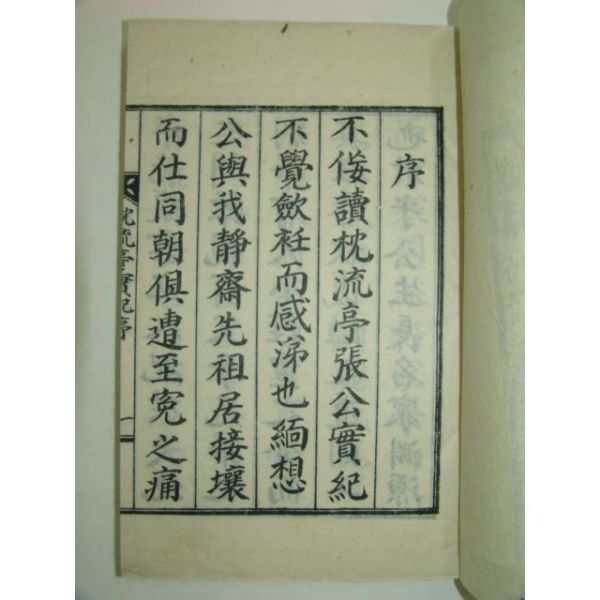 序
不侫讀枕流亭張公實紀
不覺斂衽而感涕也緬想
公與我靜齋先祖居接壤
而仕同朝俱遭至寃之痛
枕流亭實紀序
一